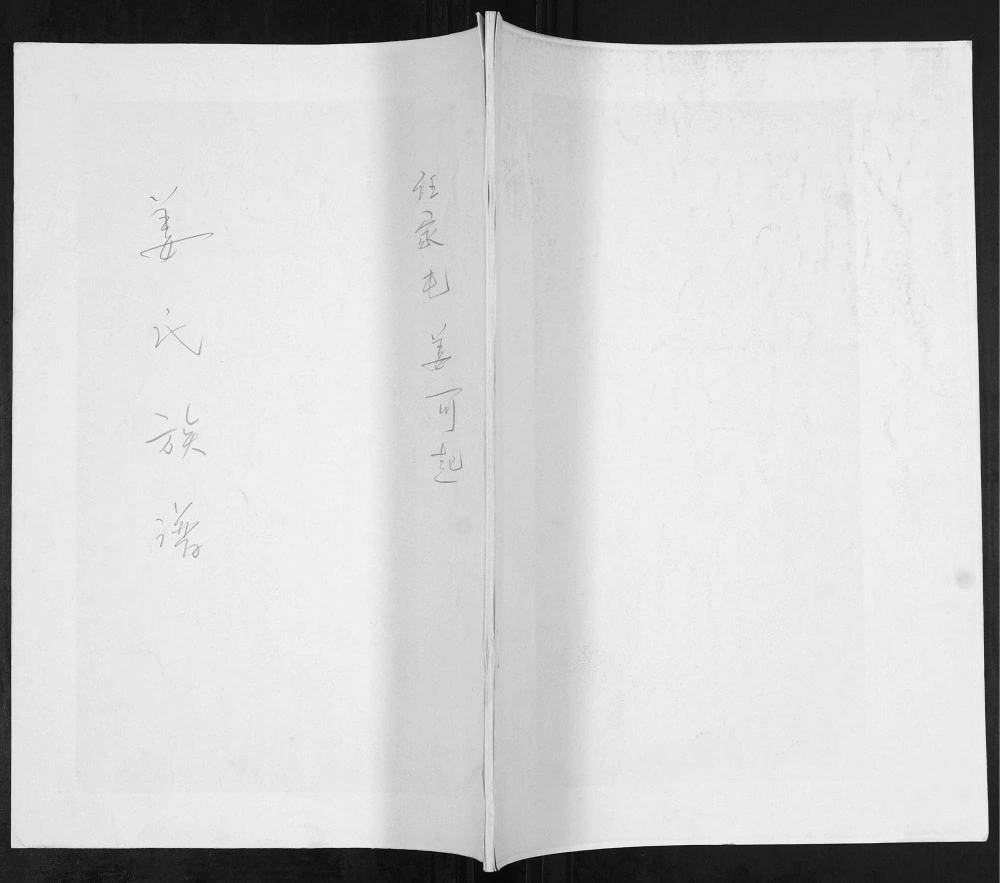 任家屯 姜可起
姜氏族谱